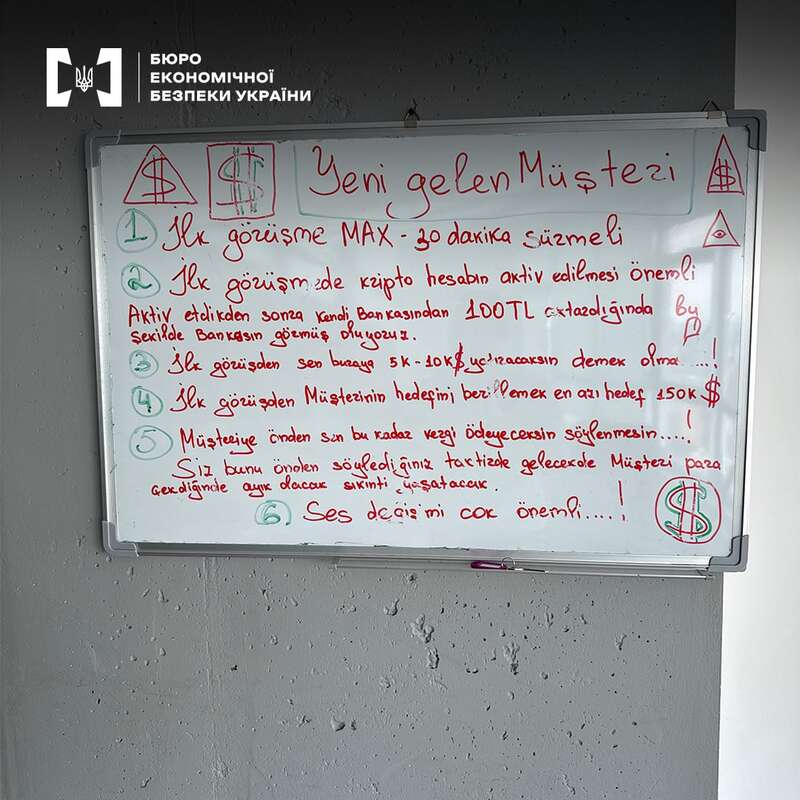 БЮРО
ЕКОНОМІЧНОЇ
БЕЗПЕКИ УКРАЇНИ
$ $ Yeni gelen Müşteri $
1 İlk görüşme MAX - 30 dakika süzmeli
2 İlk görüşmede kripto hesabın aktiv edilmesi önemli
Aktiv etdikden sonra kendi Bankasından 100TL aktardığında bu
şekilde Bankasın görmüş oluyoruz.
3 İlk görüşden sen buraya 5K - 10K$ yatıracaksın demek olma.....!
4 İlk görüşden Müşterinin hedefini belirlemek en azı hedef 150K $
5 Müşteriye önden sen bu kadar vergi ödeyeceksin söylenmesin....!
Siz bunu önden söylediğiniz taktirde gelecekde Müşteri para
çekdiğinde ayık olacak sıkıntı yaşatacak. !
6. Ses değişimi çok önemli....
$